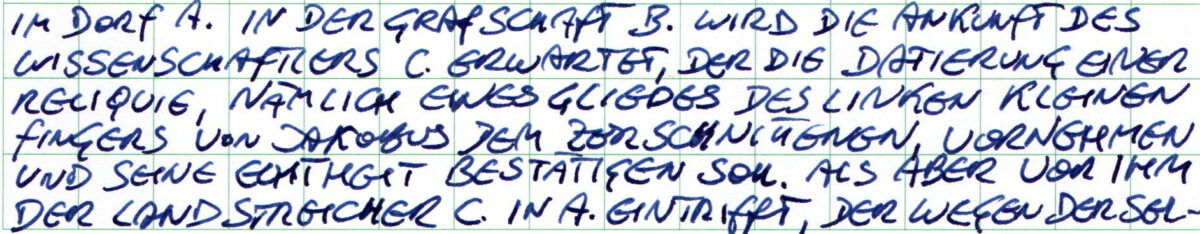 IM DORF A. IN DER GRAFSCHAFT B. WIRD DIE ANKUNFT DES
WISSENSCHAFTLERS C. ERWARTET, DER DIE DATIERUNG EINER
RELIQUIE, NÄMLICH EINES GLIEDES DES LINKEN KLEINEN
FINGERS VON JAKOBUS DEM ZERSCHNITTENEN, VORNEHMEN
UND SEINE ECHTHEIT BESTÄTIGEN SOLL. ALS ABER VOR IHM
DER LANDSTREICHER C. IN A. EINTRIFFT, DER WEGEN DERSEL-